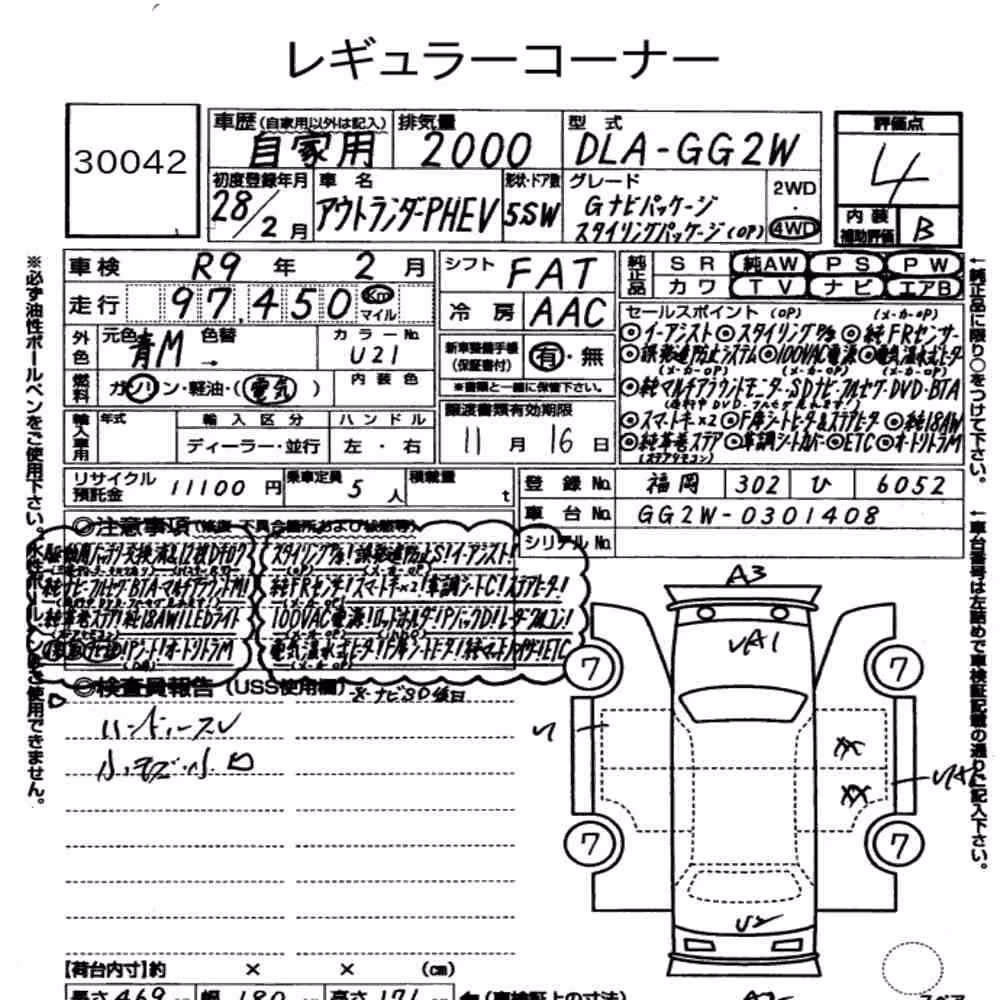 レギュラーコーナー
30042
車歴(自家用以外は記入) 自家用
排気量 2000
型式 DLA-GG2W
評価点 4
初度登録年月 28/2月
車名 アウトランダーPHEV
形状・ドア数 5.SW
グレード Gナビパッケージ
スタイリングパッケージ(OP)
2WD・4WD
内装補助評価 B
車検 R9年2月
走行 97,450 Km マイル
シフト FAT
冷房 AAC
純正品 SR 純AW PS PW
カワ TV ナビ エアB
外色 元色 青M 色替 →
カラーNo. U21
燃料 ガソリン・軽油・(電気)
内装色
新車整備手帳(保証書付) 有・無
※書類と一緒に保管下さい。
譲渡書類有効期限
11月16日
輸入車用 年式 輸入区分 ハンドル
ディーラー・並行 左・右
セールスポイント (OP) (メーカーOP)
◎イーアシスト◎スタイリングPkg◎純FRセンサー
◎誤発進防止システム◎100VAC電源◎電気温水式ヒーター
(メーカーOP) (メーカーOP)
◎純マルチアラウンドモニター・SDナビ・フルセグ・DVD・BTA
◎スマートキー×2◎F席シートヒータ&ステアヒータ◎純18AW
◎純革巻ステア◎革調シートカバー◎ETC◎オートリトラM
(ステアリモコン)
リサイクル預託金 11100円
乗車定員 5人
積載量 t
登録No. 福岡 302 ひ 6052
車台No. GG2W-0301408
シリアルNo.
◎注意事項(修復・不具合箇所および状態等)
スタイリングPkg!誤発進防止S!イーアシスト!
純ナビ・フルセグ・BTA・マルチアラウンドM!
純FRセンサー!スマートキー×2!革調シートC!ステアヒータ!
純革巻ステア!純18AW!LEDライト
電気温水式ヒーター!F席シートヒータ!純マット!ETC
◎検査員報告(USS使用欄)
※ナビSD後日
ハンドルスレ
小キズ・小凹
A3
UA1
7
7
7
7
U2
【荷台内寸】約 × × (cm)
長さ469 幅180 高さ171
(車検証上の寸法)
※必ず油性ボールペンをご使用下さい。水性ボールペンはご使用できません。
↑純正品に限り○をつけて下さい。
↑車台番号は左詰めで車検証記載の通りに記入下さい。